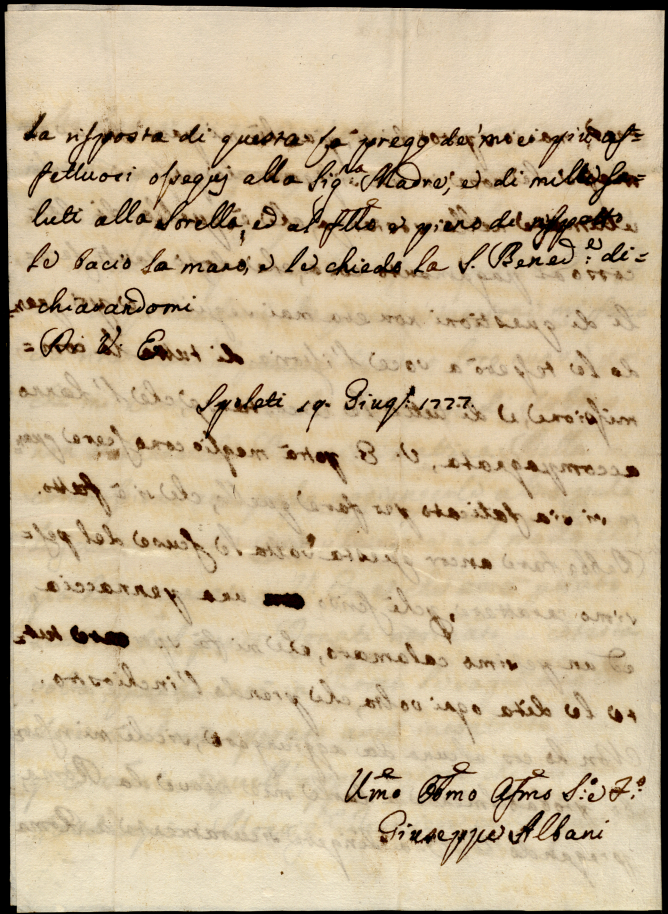 La risposta di questa la prego de' miei più af=
fettuosi ossequj alla Sig.ra Madre, e di mille sa=
luti alla Sorella, ed al fllo e pieno di rispetto
le bacio la mano, e le chiedo la S. Bened.e di=
chiarandomi
Di V. Em
Spoleti 19. Giug. 1777.
Umo Obmo Afmo S.e F.o
Giuseppe Albani